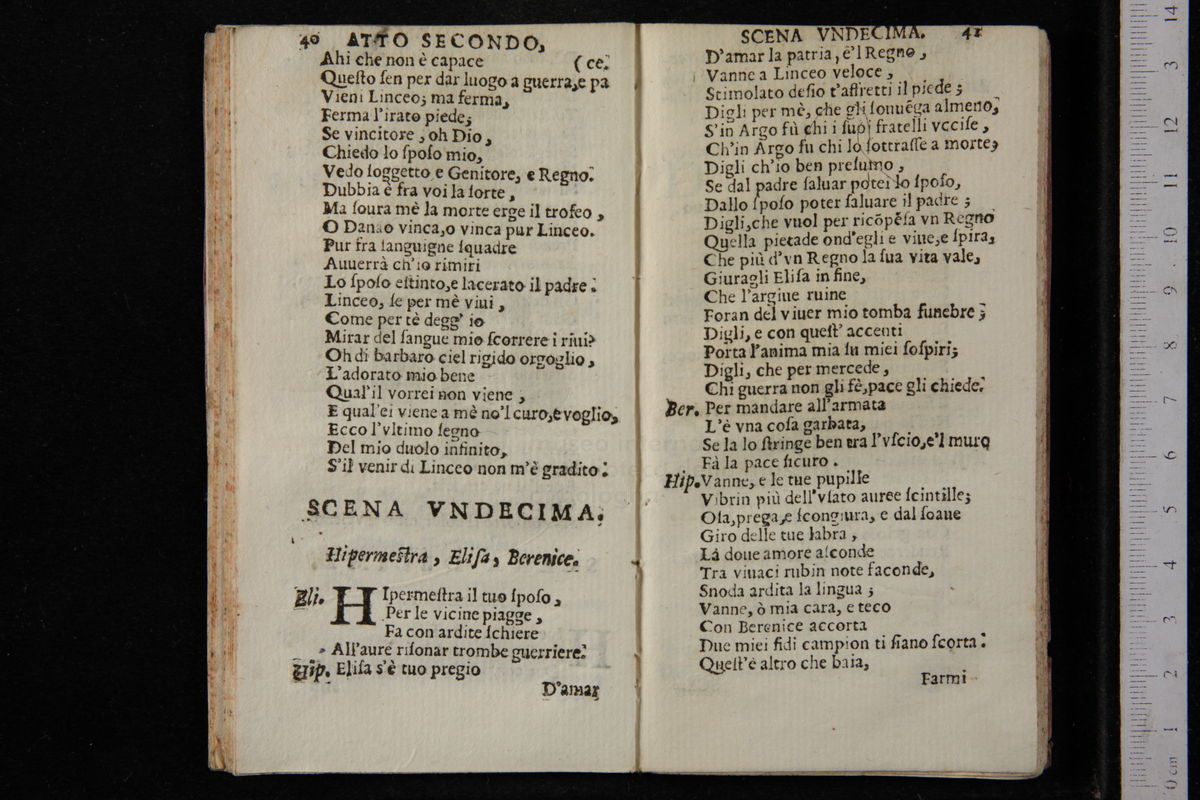 40 ATTO SECONDO,
Ahi che non è capace (ce.
Queſto ſen per dar luogo a guerra,e pa
Vieni Linceo; ma ferma,
Ferma l'irato piede;
Se vincitore, oh Dio,
Chiedo lo ſpoſo mio,
Vedo ſoggetto e Genitore, e Regno.
Dubbia è fra voi la ſorte,
Ma ſoura mè la morte erge il trofeo,
O Danao vinca,o vinca pur Linceo.
Pur fra ſanguigne ſquadre
Auuerrà ch'io rimiri
Lo ſpoſo eſtinto,e lacerato il padre.
Linceo, ſe per mè viui,
Come per tè degg' io
Mirar del ſangue mio ſcorrere i riui?
Oh di barbaro ciel rigido orgoglio,
L'adorato mio bene
Qual'il vorrei non viene,
E qual'ei viene a mè no'l curo,e voglio,
Ecco l'vltimo ſegno
Del mio duolo infinito,
S'il venir di Linceo non m'è gradito.
SCENA VNDECIMA.
Hipermeſtra, Eliſa, Berenice.
Eli. HIpermeſtra il tuo ſpoſo,
Per le vicine piagge,
Fa con ardite ſchiere
All'aure riſonar trombe guerriere.
Hip. Eliſa s'è tuo pregio
D'amar
SCENA VNDECIMA. 41
D'amar la patria, e'l Regno,
Vanne a Linceo veloce,
Stimolato deſio t'affretti il piede;
Digli per mè, che gli ſouuēga almeno,
S'in Argo fù chi i ſuoi fratelli vcciſe,
Ch'in Argo fu chi lo ſottraſſe a morte;
Digli ch'io ben preſumo,
Se dal padre ſaluar potei lo ſpoſo,
Dallo ſpoſo poter ſaluare il padre;
Digli,che vuol per ricōpēſa vn Regno
Quella pietade ond'egli e viue,e ſpira,
Che più d'vn Regno la ſua vita vale,
Giuragli Eliſa in fine,
Che l'argiue ruine
Foran del viuer mio tomba funebre;
Digli, e con queſt' accenti
Porta l'anima mia ſu miei ſoſpiri;
Digli, che per mercede,
Chi guerra non gli fè,pace gli chiede.
Ber. Per mandare all'armata
L'è vna coſa garbata,
Se la lo ſtringe ben tra l'vſcio,e'l muro
Fà la pace ſicuro.
Hip. Vanne, e le tue pupille
Vibrin più dell'vſato auree ſcintille;
Oſa,prega,e ſcongiura, e dal ſoaue
Giro delle tue labra,
Là doue amore aſconde
Tra viuaci rubin note faconde,
Snoda ardita la lingua;
Vanne, ò mia cara, e teco
Con Berenice accorta
Due miei fidi campion ti ſiano ſcorta.
Queſt'è altro che baia,
Farmi